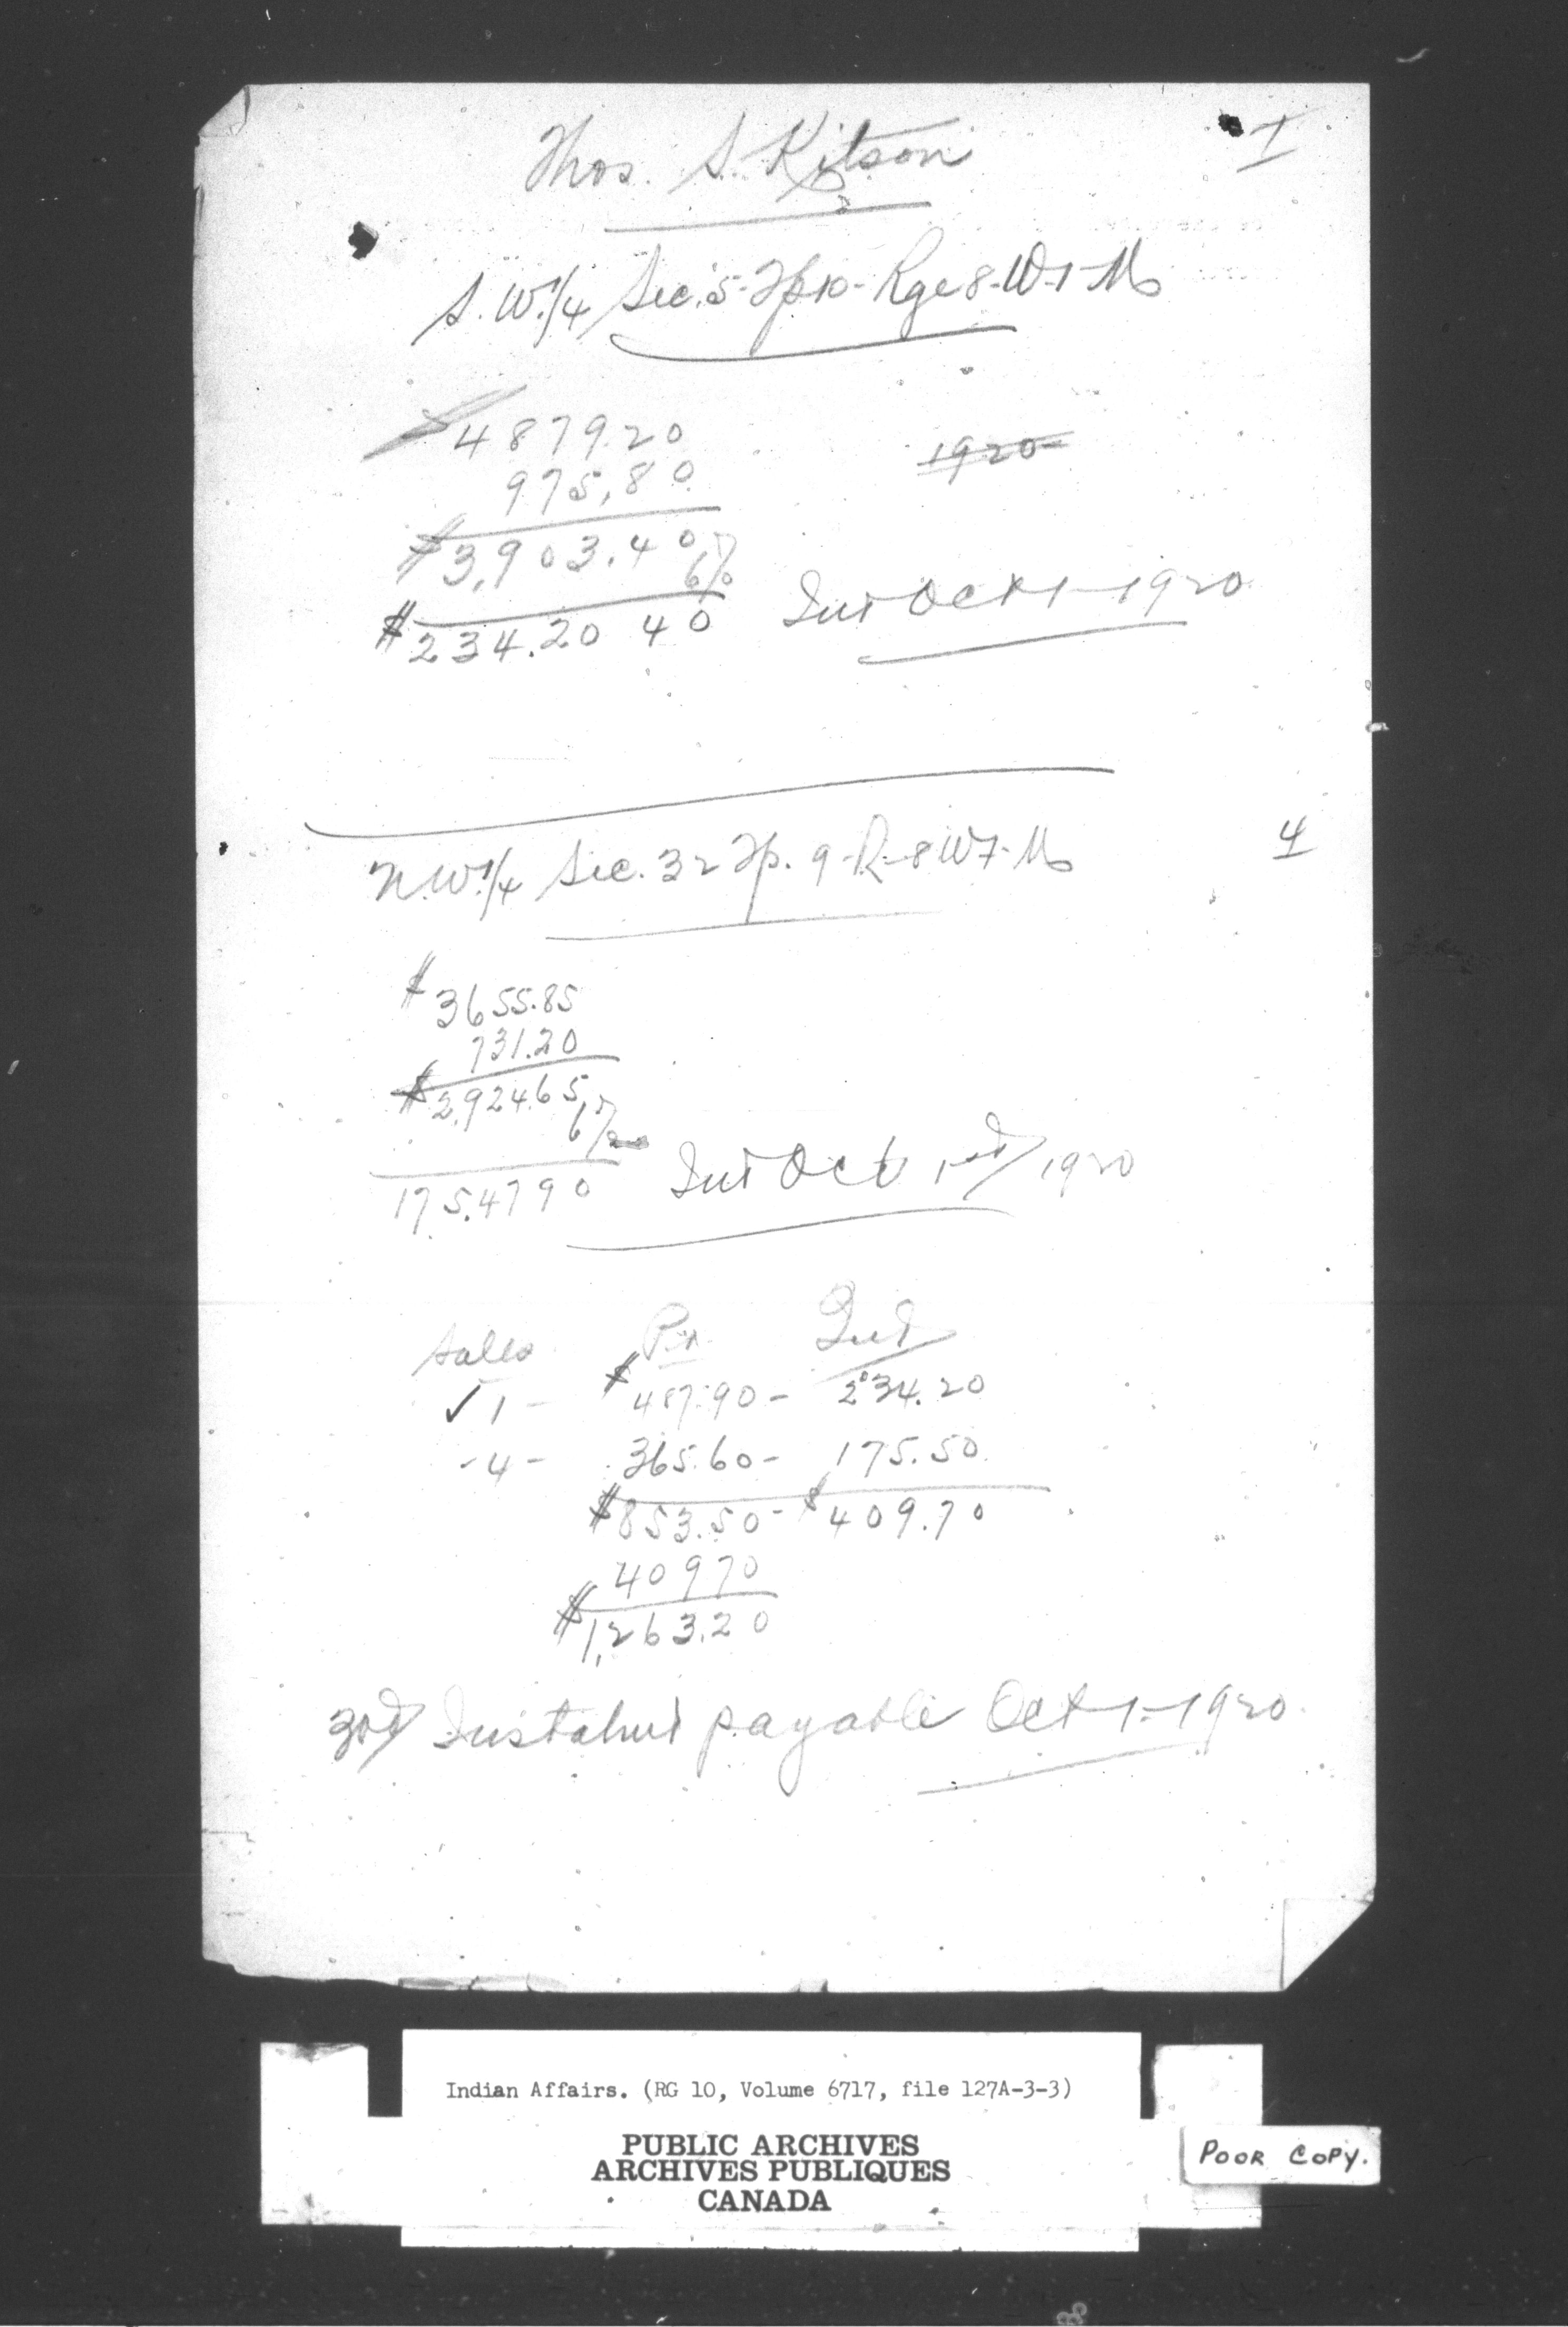 Thos. S. Kitson
I
S.W.1/4 Sec. 5-Tp 10-Rge 8-W-1-M
$4879.20
1920
975.80
$3,903.40
6%
$234.20 40 Int Oct 1-1920
N.W.1/4 Sec. 32 Tp. 9-R-8 W1-M
4
$3655.85
731.20
$2,924.65
6%
175.4790 Int Oct 1st/1920
Sales Pr. Int
✓1- $487.90- 234.20
-4- 365.60- 175.50
$853.50- $409.70
40970
$1,263.20
3rd Instalmt payable Oct-1-1920.
Indian Affairs. (RG 10, Volume 6717, file 127A-3-3)
PUBLIC ARCHIVES
ARCHIVES PUBLIQUES
CANADA
POOR COPY.